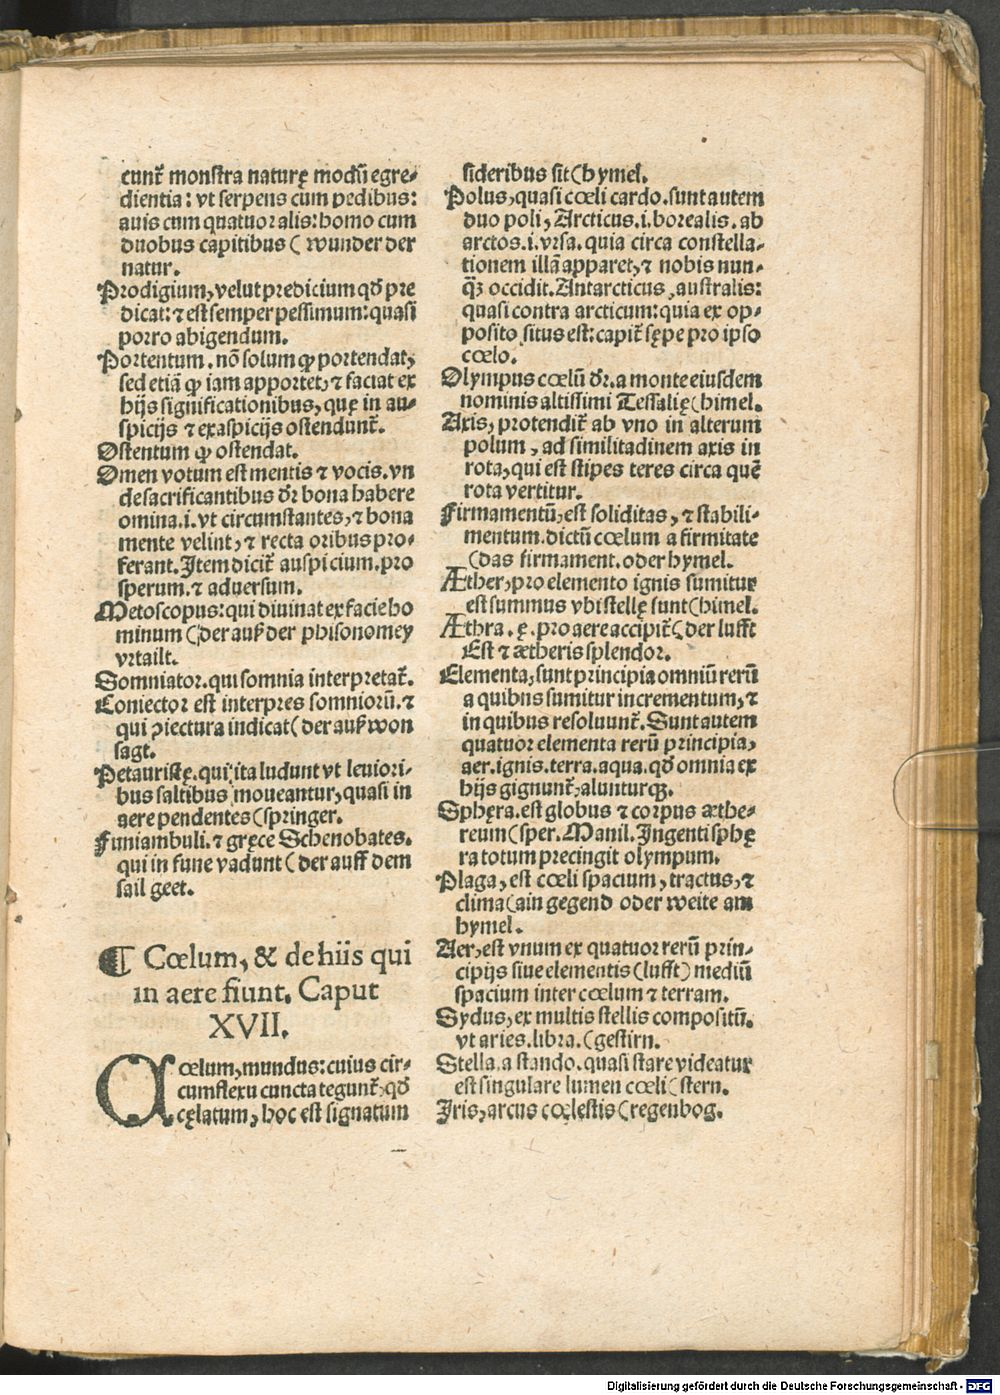 cunt᷑ monstra naturę modū egre⸗
dientia: vt serpens cum pedibus:
auis cum quatuor alis: homo cum
duobus capitibus ( wunder der
natur.
Prodigium, velut predicium qđ pre
dicat: ⁊ est semper pessimum: quasi
porro abigendum.
Portentum. nō solum ꝙ portendat,
sed etiā ꝙ iam apportet, ⁊ faciat ex
hijs significationibus, quę in au⸗
spicijs ⁊ exaspicijs ostendunt᷑.
Ostentum ꝙ ostendat.
Omen votum est mentis ⁊ vocis. vn
de sacrificantibus dr̄ bona habere
omina .i. vt circumstantes, ⁊ bona
mente velint, ⁊ recta oribus pro⸗
ferant. Item dicit᷑ auspicium. pro
sperum. ⁊ aduersum.
Metoscopus: qui diuinat ex facie ho
minum ( der auß der phisonomey
vrtailt.
Somniator. qui somnia interpretat᷑.
Coniector est interpres somniorū. ⁊
qui ↄiectura indicat ( der auß won
sagt.
Petauristę. qui ita ludunt vt leuiori⸗
bus saltibus moueantur, quasi in
aere pendentes ( springer.
Funiambuli. ⁊ gręce Schenobates.
qui in fune vadunt ( der auff dem
sail geet.
¶ Cœlum, & de hiis qui
in aere fiunt. Caput
XVII.
Cœlum, mundus: cuius cir⸗
cumflexu cuncta tegunt᷑, qđ
cęlatum, hoc est signatum
sideribus sit ( hymel.
Polus, quasi cœli cardo. sunt autem
duo poli, Arcticus .i. borealis. ab
arctos .i. vrsa. quia circa constella⸗
tionem illā apparet, ⁊ nobis nun⸗
qꝫ occidit. Antarcticus, australis:
quasi contra arcticum: quia ex op⸗
posito situs est: capit᷑ sępe pro ipso
cœlo.
Olympus cœlū dr̄. a monte eiusdem
nominis altissimi Tessalię ( himel.
Axis, protendit᷑ ab vno in alterum
polum, ad similitadinem axis in
rota, qui est stipes teres circa quē
rota vertitur.
Firmamentū, est soliditas, ⁊ stabili⸗
mentum. dictū cœlum a firmitate
( das firmament. oder hymel.
Æther, pro elemento ignis sumitur
est summus vbi stellę sunt ( himel.
Æthra. ę. pro aere accipit᷑ ( der lufft
Est ⁊ ætheris splendor.
Elementa, sunt principia omniū rerū
a quibus sumitur incrementum, ⁊
in quibus resoluunt᷑. Sunt autem
quatuor elementa rerū principia,
aer. ignis. terra. aqua. qđ omnia ex
hijs gignunt᷑, alunturqꝫ.
Sphęra. est globus ⁊ corpus æthe⸗
reum ( sper. Manil. Ingenti sphę
ra totum precingit olympum.
Plaga, est cœli spacium, tractus, ⁊
clima ( ain gegend oder weite am
hymel.
Aer, est vnum ex quatuor rerū prin⸗
cipijs siue elementis ( lufft ) mediū
spacium inter cœlum ⁊ terram.
Sydus, ex multis stellis compositū.
vt aries. libra. ( gestirn.
Stella. a stando. quasi stare videatur
est singulare lumen cœli ( stern.
Iris, arcus cœlestis ( regenbog.
Digitalisierung gefördert durch die Deutsche Forschungsgemeinschaft - DFG